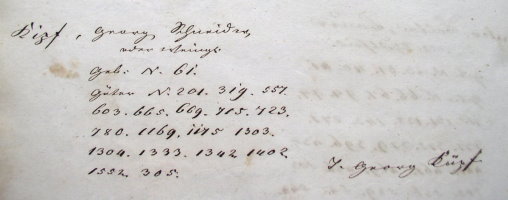 Kipf, Georg Schneider,
oder
Geb: N. 61.
Güter N. 201. 319. 557.
603. 665. 669. 715. 723.
780. 1169. 1175 1303.
1304. 1333. 1342. 1402.
1552. 305.
J. Georg Küpf